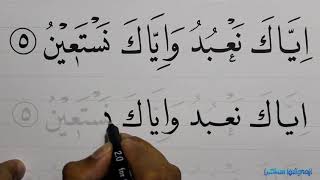 اِيَّاكَ نَعْبُدُ وَاِيَّاكَ نَسْتَعٖينُ ٥
اياكَ نعْبد وَاِياكَ نَسْتَعٖينُ ٥
2.0